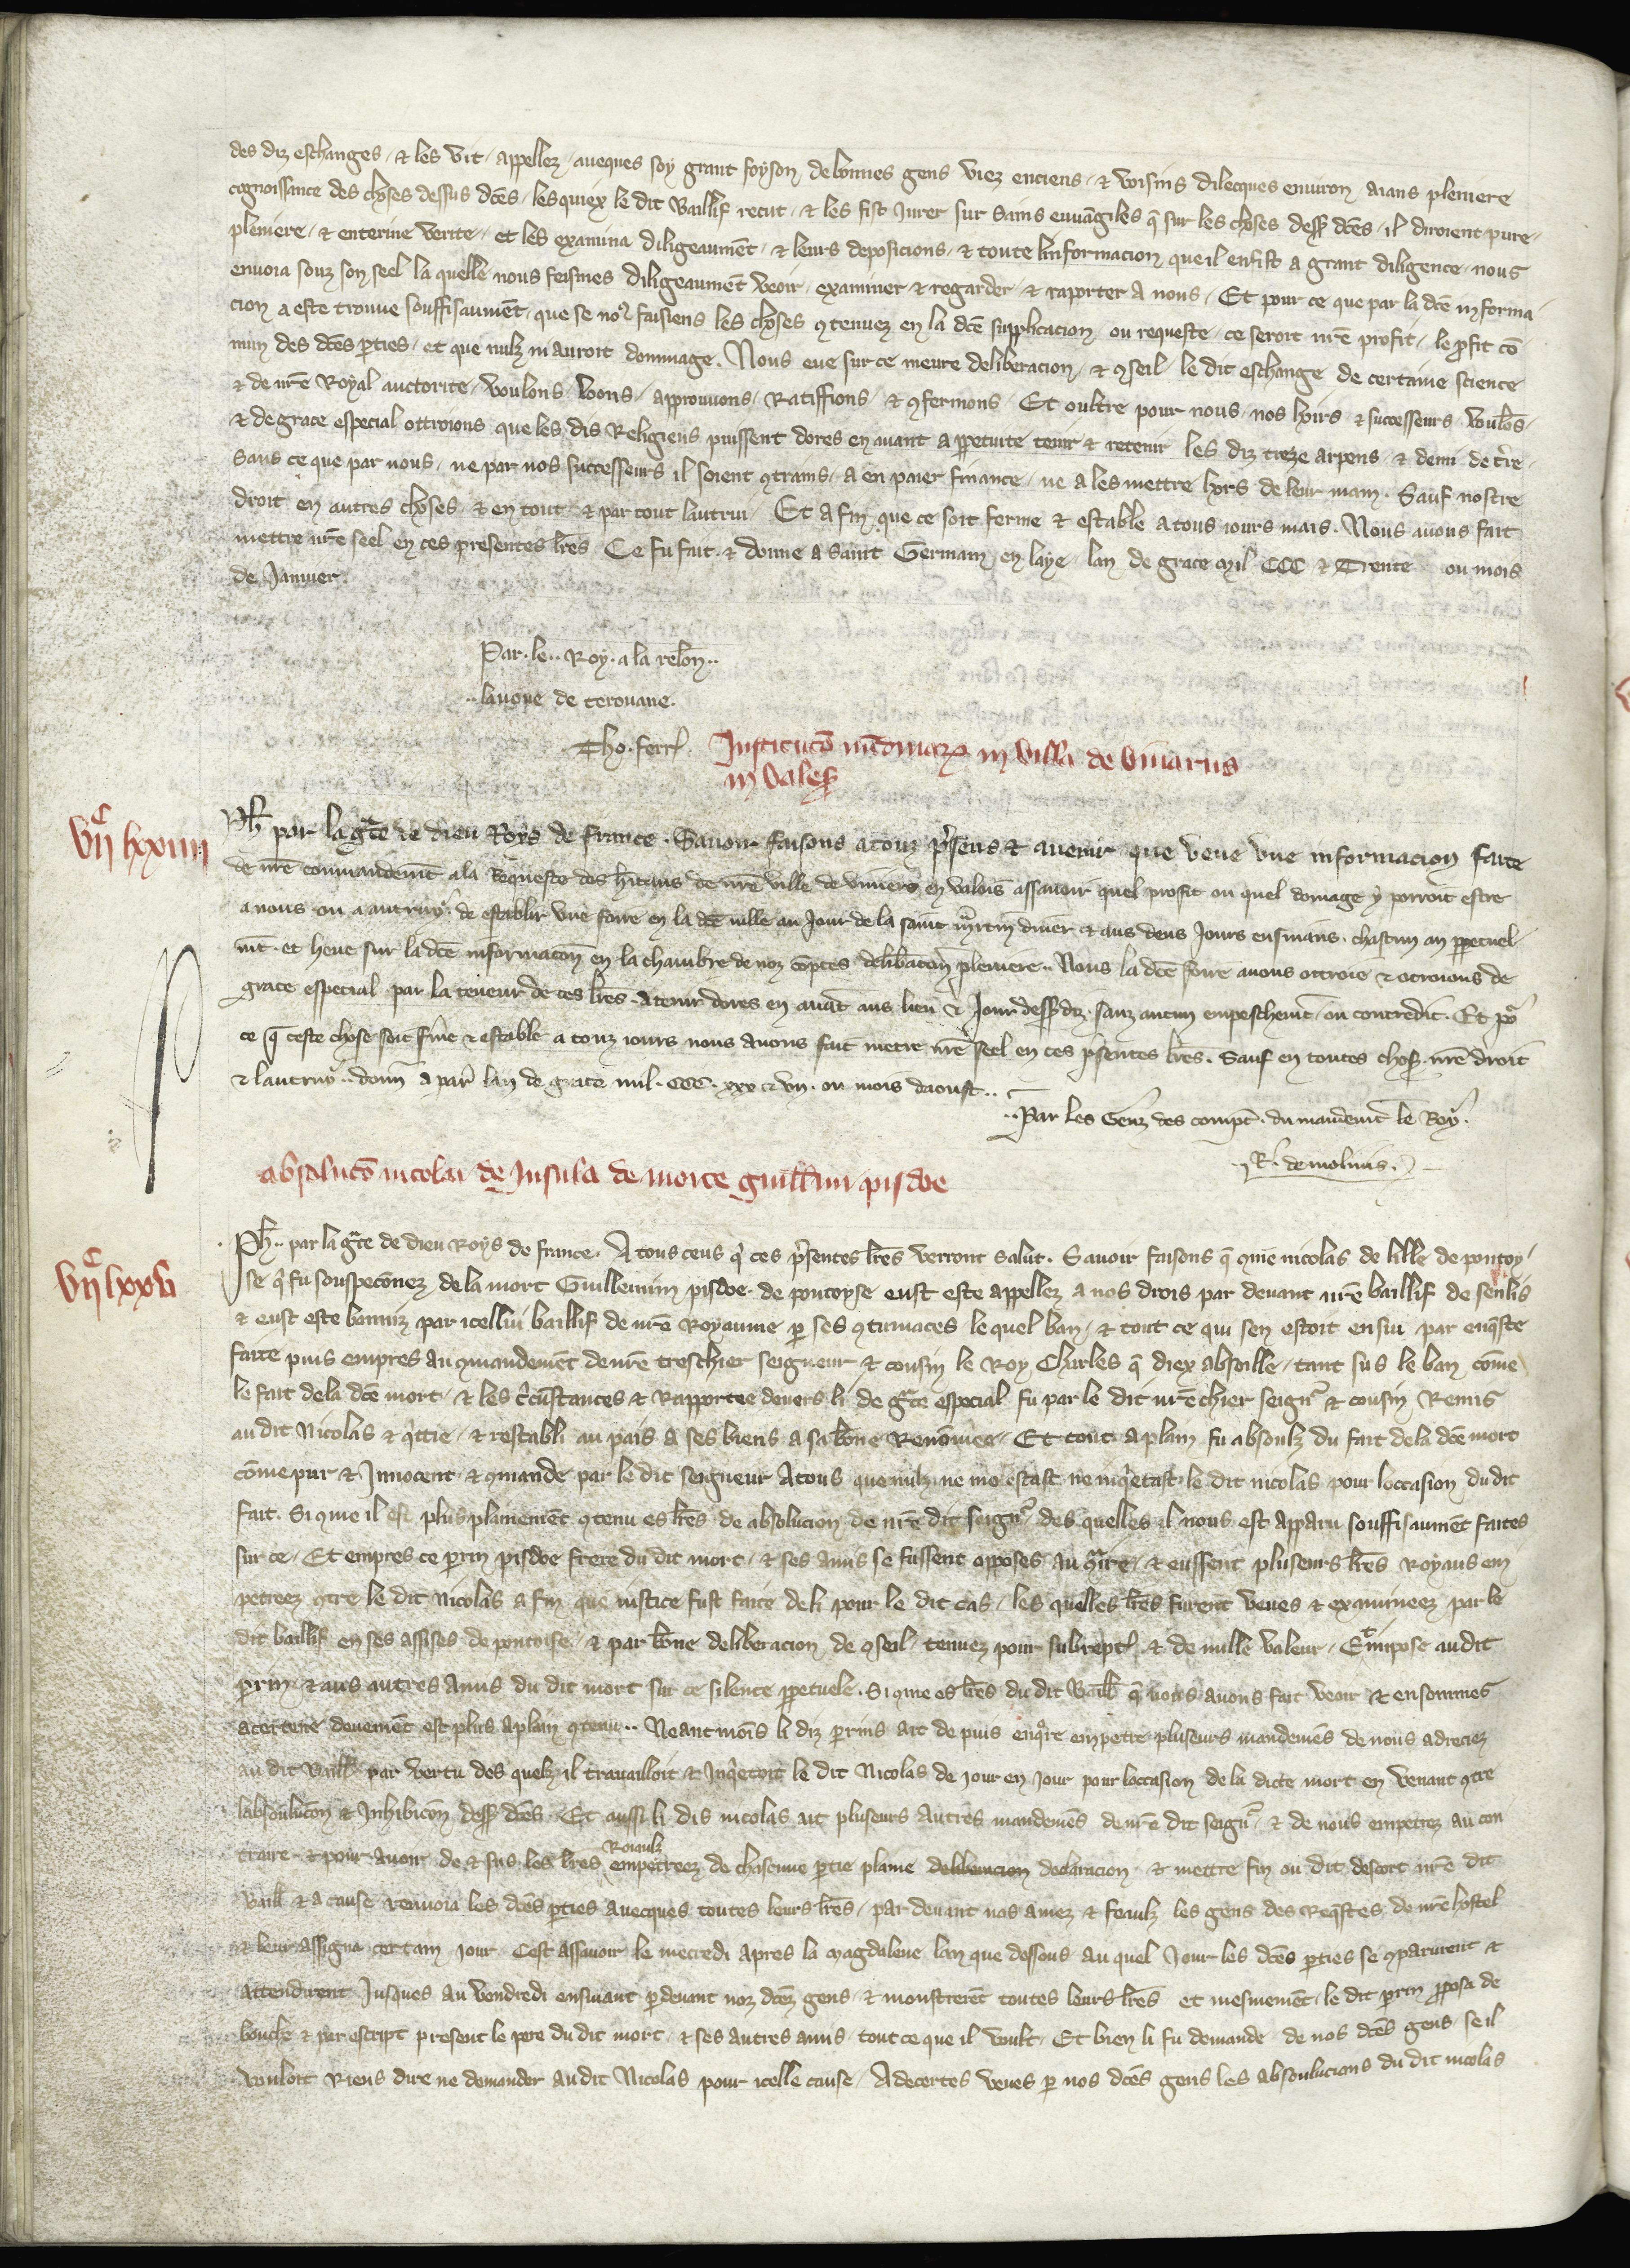 des diz eschanges, & les vit, appellez, aueques soy grant foyson de bonnes gens viez enciens, & voisins dilecques enuiron, aians pleniere
cognoissance des choses dessus dc̃es, lesquiex le dit Baillif recut, & les fist Jurer sur Sains euuãgiles q̃ sur les choses dess9 dc̃es, il diroient pure,
pleniere, & enterine verite, et les examina diligeaumẽt, & leurs deposicions, & toute linformacion, que il en fist a grant diligence, nous
enuoia souz son seel la quelle nous feismes diligeaumẽt veoir, examiner & regarder, & raporter a nous, Et pour ce que par la dc̃e informa
cion a este trouue souffisaumẽt, que se no9 faisiens les choses 9tenuez en la dc̃e supplicacion, ou requeste, ce seroit nr̃e profit, le ꝓfit cõ
mun des dc̃es ꝑties, et que nulz ni auroit dommage. Nous eue sur ce meure deliberacion, & 9seil, le dit eschange de certaine science
& de nr̃e Royal auctorite, voulons, loons, approuuons, Ratiffions, & 9fermons, Et oultre pour nous, nos hoirs & successeurs, voulõs,
& de grace especial ottroions que les dis Religieus puissent dores en auant a ꝑpetuite tenir & retenir les diz treze arpens, & demi de tr̃re,
Sans ce que par nous, ne par nos successeurs il soient 9trains, a en paier finance, ne a les mettre hors de leur main. Sauf nostre
droit en autres choses, & en tout, & par tout lautrui, Et a fin que ce soit ferme & estable a tous iours mais. Nous auons fait
mettre nr̃e seel en ces presentes lr̃es Ce fu fait, & donne a Saint Germain en laye, lan de grace Mil CCC & Trente ou mois
de Januier.
Par le Roy. a la relõn
lauoue de terouane.
Tho. ferr̃.
Institucõ nũdinarꝝ in villa de viuariis
in vales̃
VIIC LXXIIII
Ph̃ par la gr̃ce de dieu Roys de france. Sauoir faisons a touz p̃sens & auenir que veue vne informacion faite
de nr̃e commandemẽt a la Requeste des hĩtans de nr̃e ville de viuiers en valois assauoir quel profit ou quel domage y porroit estre
a nous ou a autruy, de establir vne foire en la dc̃e ville au Jour de la saint m̃rtin diuer & aus deus Jours ensuians. chascun an ꝑpetuel
mẽt. et heue sur la dc̃e informacõn en la chambre de noz cõptes deliƀacõn pleniere. Nous la dc̃e foire auons ottroie & otroions de
grace especial par la teneur de ces lr̃es, a tenir dores en auãt aus lieu & Jour dess9 diz, sanz aucun empeschemẽt, ou contredit. Et po2
ce q̃ ceste chose soit fr̃me & estable a touz iours nous auons fait metre nr̃e seel en ces p̃sentes lr̃es. Sauf en toutes chos9 nr̃e droit
& lautruy. donn̄ a par̃ lan de grace mil. CCC. xxx & vii. ou mois daoust..
Par les Genz des compt̃. du mandemẽt le Roy.
R. de molinis.
absolucõ nicolai de Insula de morte guillm̃i pisdoe
VIIC LXXV
Ph̃. par la gr̃ce de dieu Roys de france. A tous ceus q̃ ces p̃sentes lr̃es verront salut. Sauoir faisons q̃ 9me nicolas de lille de pontoy
se q̃ fu souspeconez de la mort Guillemin pisdoe de pontoyse eust este appellez a nos drois par deuant nr̃e baillif de senlis
& eust este banniz par icellui baillif de nr̃e Royaume ꝑ ses 9tumaces le quel ban, & tout ce qui sen estoit ensui par enq̃ste
faite puis empres au 9mandemẽt de nr̃e treschier seigneur & cousin le Roy Charles q̃ diex absoille, tant sus le ban cõme
le fait de la dc̃e mort, & les c̃cũstances & Rapportee deuers li de gr̃ce especial fu par le dit nr̃e chier seign2 & cousin Remis
au dit Nicolas & q̃ttie, & restabli au pais a ses biens a sa bõne Renõmee, Et tout a plain fu absoulz du fait de la dc̃e mort
cõme pur & Innocent & 9mande par le dit seigneur A tous que nulz ne molestast ne inq̃etast, le dit nicolas pour loccasion du dit
fait. Si 9me il est plus plainemẽt 9tenu es lr̃es de absolucion de nr̃e dit seign2 des quelles il nous est apparu souffisaumẽt faites
sur ce, Et empres ce ꝑrin pisdoe frere du dit mort, & ses amis se fussent opposes au 9t̃ire, & eussent pluseurs lr̃es Royaus em
petreez 9tre le dit Nicolas a fin que iustice fust faite de li pour le dit cas, les quelles lr̃es furent veues & examineez par le
dit baillif en ses assises de pontoise, & par bõne deliberacion de 9seil, tenuez pour subrept̃. & de nulle valeur, Et impose au dit
ꝑrin, & aus autres amis du dit mort sur ce silence ꝑpetuele. Si 9me es lr̃es du dit Baill̃ q̃ nous auons fait veoir & en sommes
acertene deuemẽt est plus a plain 9tenu.. Neantmoĩs li diz ꝑrins ait de puis enq̃re empetre pluseurs mandemẽs de nous adreciez
au dit Baill̃ par vertu des quelz il trauailloit & Inq̃etoit le dit Nicolas de jour en jour pour loccasion de la dicte mort en venant 9tre
labsolucõn & Inhibicõn dess9 dc̃es. Et aussi li dis nicolas ait pluseurs autres mandemẽs de nr̃e dit seign2 & de nous empetrez au con
traire & pour auoir de & sus les lr̃es Roiaulz empetreez de chascune ꝑtie plaine deliberacion declaracion & mettre fin ou dit descort nr̃e dit
Baill̃ & a cause renuoia les dc̃es ꝑties auecques toutes leurs lr̃es, par deuant nos amez & feaulz les gens des Req̃stes de nr̃e hostel
& leur assigna certain jour, Cest assauoir le mecredi apres la Magdalene lan que dessous au quel Jour les dc̃es ꝑties se 9parurent &
attendirent Jusques au vendredi ensuiant ꝑdeuant noz dc̃ez gens & monstrerẽt toutes leurs lr̃es et mesmemẽt, le dit ꝑrin ꝓposa de
bouche & par escript present le pere du dit mort, & ses autres amis, tout ce que il voult, Et bien li fu demande de nos dc̃es gens se il
vouloit Riens dire ne demander au dit Nicolas pour icelle cause, Adecertes veues ꝑ nos dc̃es gens les absoulucions du dit nicolas